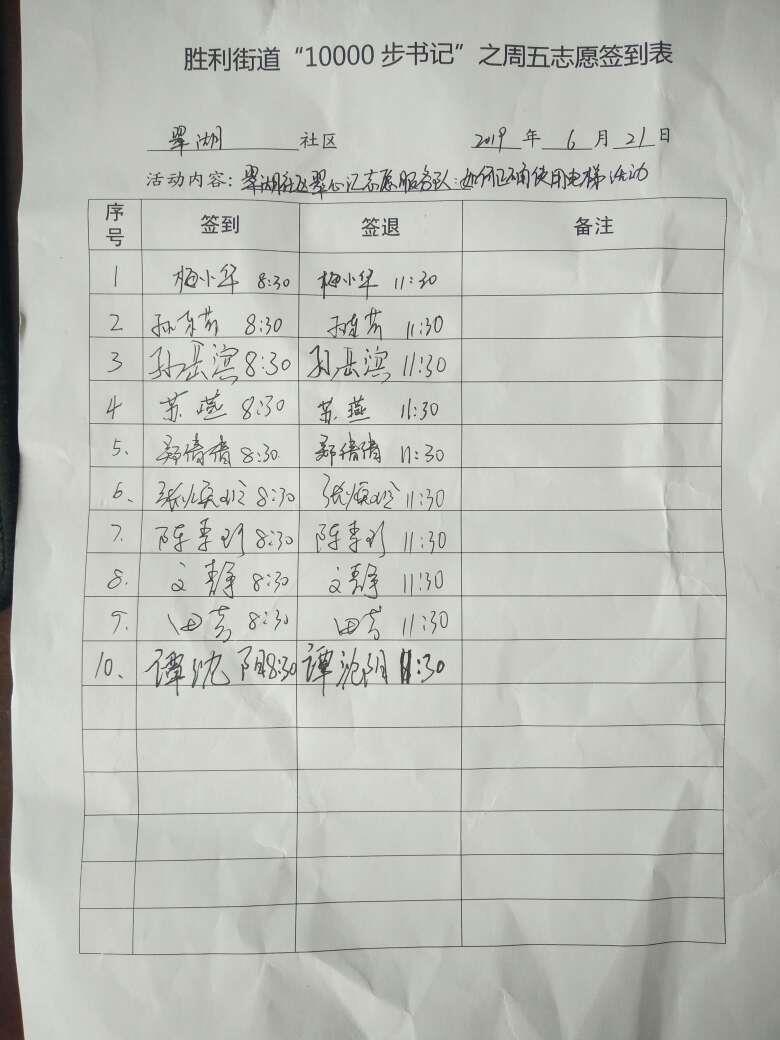 胜利街道“10000步书记”之周五志愿签到表
翠湖 社区 2019 年 6 月 21 日
活动内容：翠湖社区翠心汇志愿服务队：如何正确使用电梯活动
序号 签到 签退 备注
1 梅小华 8:30 梅小华 11:30
2 8:30 11:30
3 孙岳滨 8:30 孙岳滨 11:30
4 苏燕 8:30 苏燕 11:30
5. 郑倩倩 8:30. 郑倩倩 11:30
6. 8:30 11:30
7. 8:30 11:30
8. 文静 8:30 文静 11:30
9. 田青 8:30 田青 11:30
10、 谭 8:30 谭 11:30